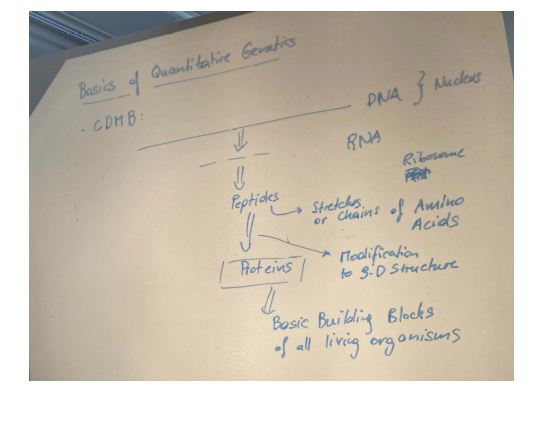 Basics of Quantitative Genetics
- CDMB:
DNA } Nucleus
RNA
Ribosome
Peptides
Stretches
or Chains of Amino
Acids
Modification
to 3-D Structure
Proteins
Basic Building Blocks
of all living organisms